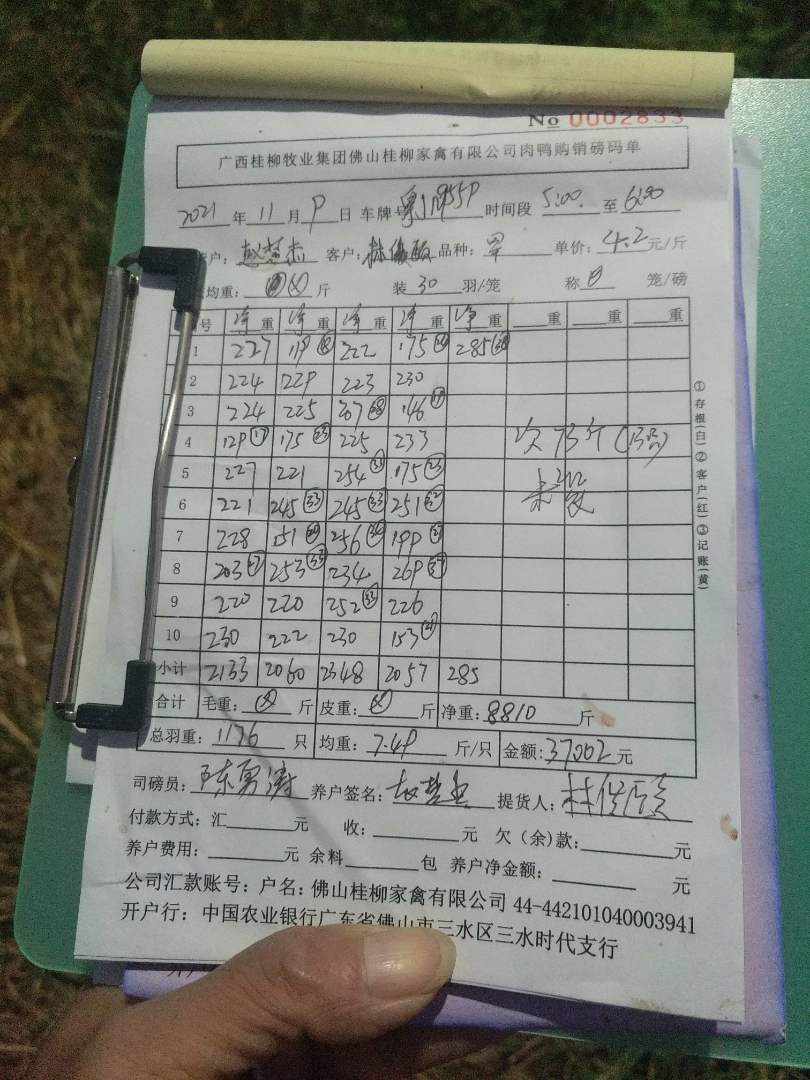 No 0002833
广西桂柳牧业集团佛山桂柳家禽有限公司肉鸭购销磅码单
2021 年 11 月 9 日 车牌号 时间段 5:00. 至 6:00
户: 客户: 品种: 单价: 4.2 元/斤
均重: 斤 装 30 羽/笼 称 笼/磅
号 净重 净重 净重 净重 净重 重 重 重
1 227 119 222 175 285
2 224 229 223 230
3 224 225 207 146
4 129 175 225 233
5 227 221 254 175
6 221 245 245 251
7 228 151 256 199
8 203 253 234 269
9 220 220 252 226
10 230 222 230 153
小计 2133 2060 2348 2057 285
合计 毛重: 斤 皮重: 斤 净重: 8810 斤
总羽重: 1176 只 均重: 7.49 斤/只 金额: 37002 元
司磅员: 养户签名: 提货人:
付款方式: 汇 元 收: 元 欠(余)款: 元
养户费用: 元 余料 包 养户净金额: 元
公司汇款账号: 户名: 佛山桂柳家禽有限公司 44-442101040003941
开户行: 中国农业银行广东省佛山市三水区三水时代支行
①存根(白)②客户(红)③记账(黄)